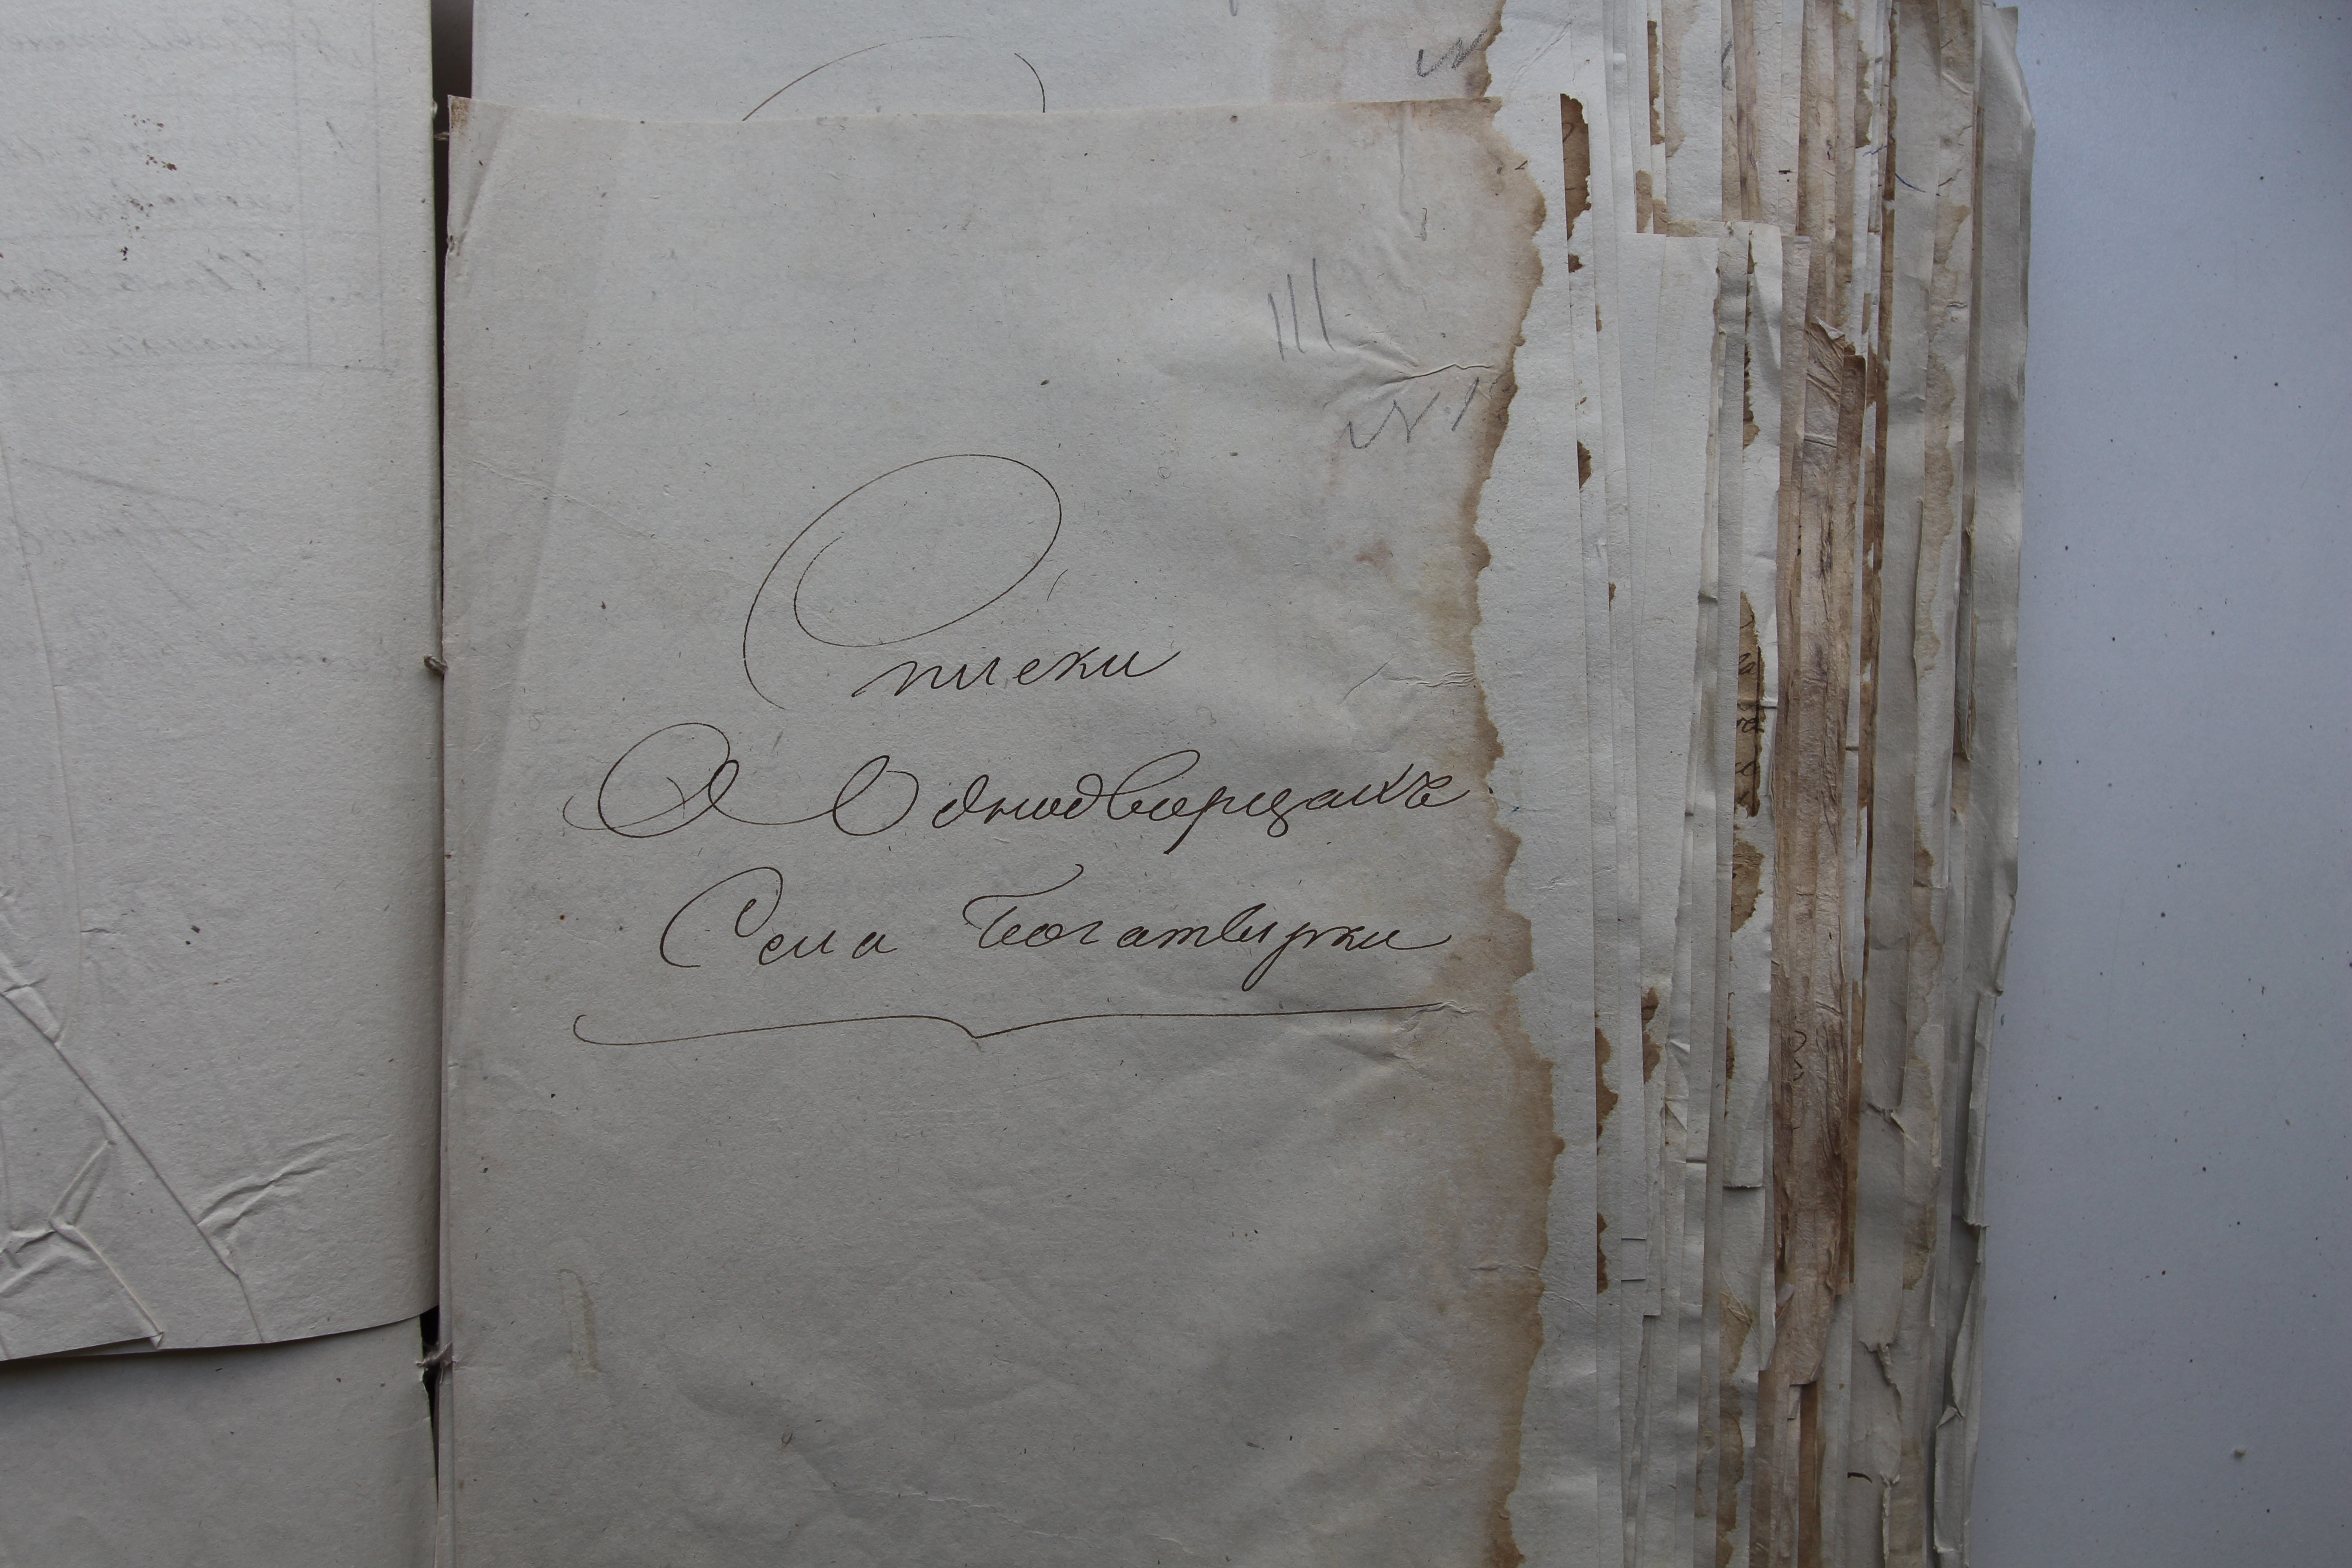 III
N 1
Списки
О Однодворцахъ
Села Богатырки